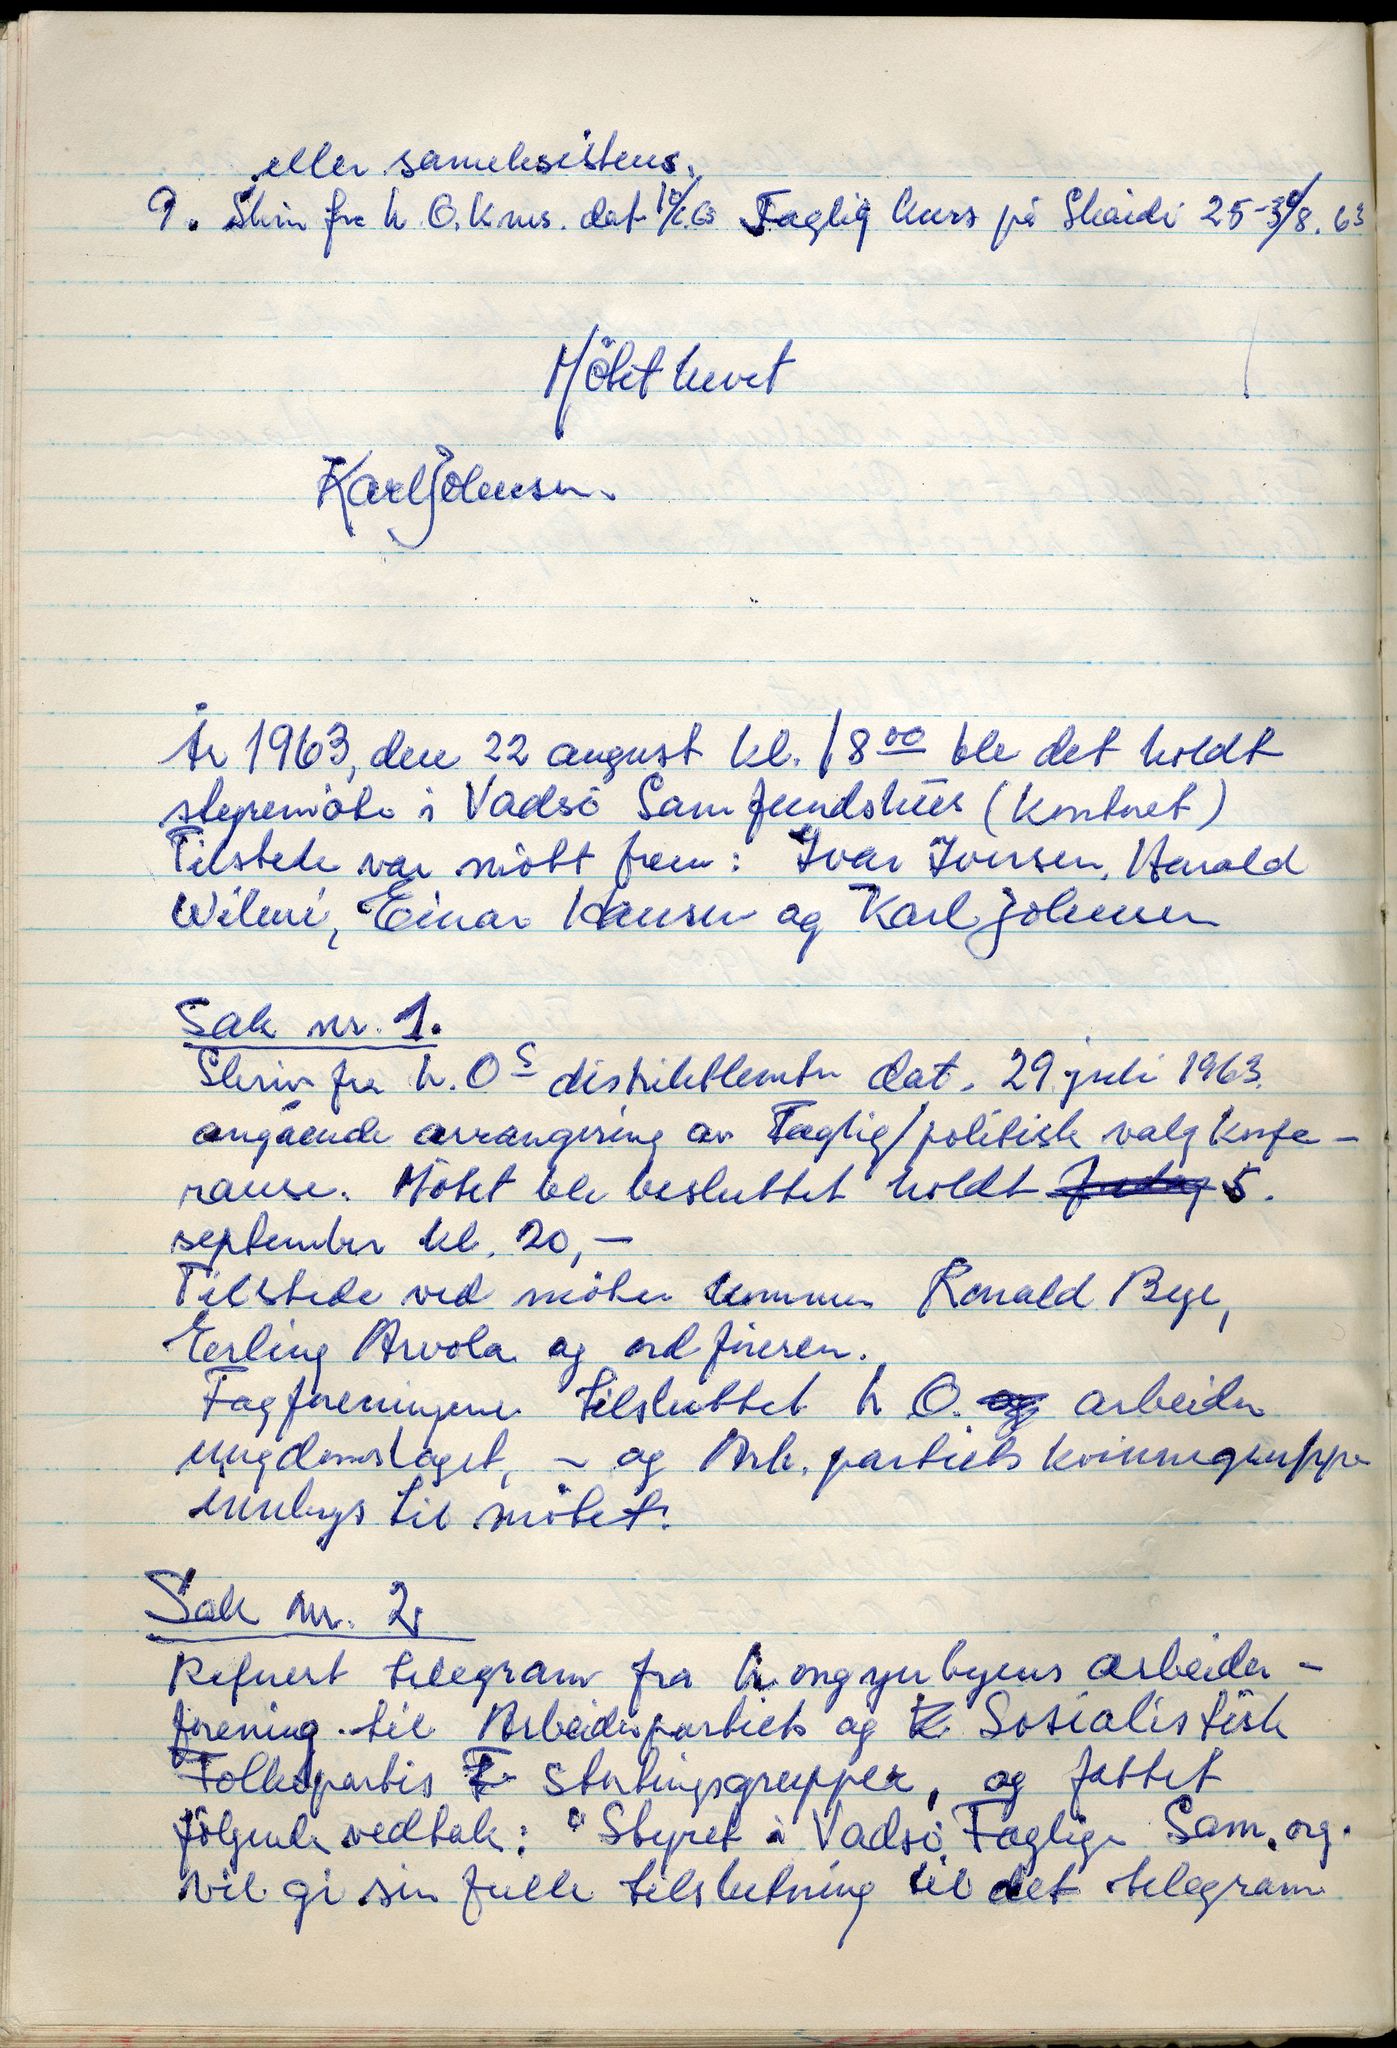 eller sameksistens.
9. Skriv fra L.O. dat. Faglig kurs på Skaidi 25-30/8.63
Möbet hevet
Karl Johnsen.
År 1963, den 22 august kl. 18 00 ble det holdt
styremöte i Vadsö Samfundshus (Kontoret)
Tilstede var mött frem: Ivar Iversen, Harald
Wilmi, Einar Hansen og Karl Johnsen
Sak nr. 1.
Skriv fra L.O s distriktkontor dat. 29. juli 1963.
angående arrangering av Faglig/politisk valg konfe-
ranse. Mötet ble besluttet holdt fredag 5.
september kl. 20,-
Tilstede ved möten kommer Ronald Bye,
Eerling Arvola og ordföreren.
Fagforeningene tilsluttet L.O. og arbeider
ungdomslaget, - og Arb. partiets kvinnegruppe
innbys til mötet.
Sak nr. 2.
Referert telegram fra Longyerbyens arbeider-
forening til Arbeiderpartiets og Sosialistisk
Folkepartis Stortingsgrupper, og fattet
fölgende vedtak: "Styret i Vadsö Faglige Sam.org.
vil gi sin fulle tilslutning til det telegram